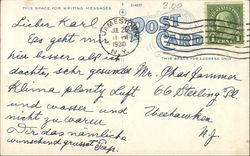 THIS SPACE FOR WRITING MESSAGES
POST CARD
THIS SPACE FOR ADDRESS ONLY
JAMESTOWN
JUL 2
11
1930
N.Y.
2.00
Lieber Karl
Es geht mir
hier besser als ich
dachte, sehr gesunder
Klima plenty Luft
und wasser und
nicht zu warm
Dir das nämliche
wünschend grüsst Pap.
Mr. Chas Jammer
66 Sterling Pl.
Weehawken
N.J.